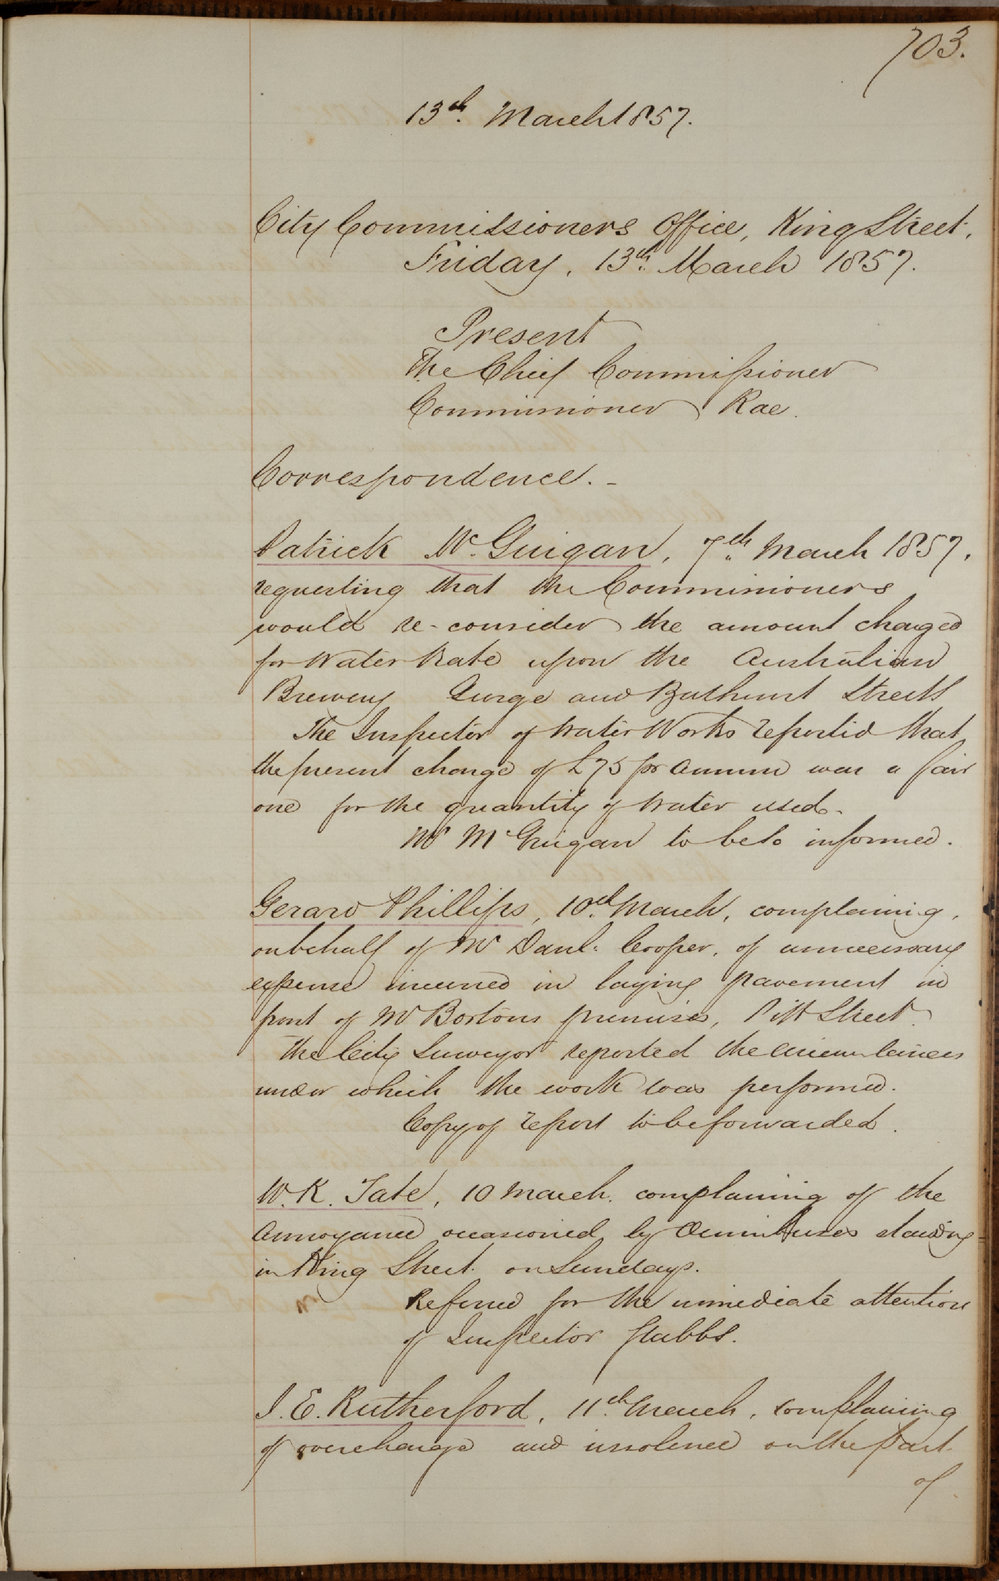 703.
13th. March 1857.
City Commissioners Office, King Street,
Friday, 13th. March 1857.
Present
The Chief Commissioner
Commissioner Rae.
Correspondence. -
Patrick Mc. Guigan, 7th March 1857,
requesting that the Commissioners
would re-consider the amount charged
for Water Rate upon the Australian
Brewery George and Bathurst Streets
The Inspector of Water Works reported that
the present charge of £75 pr annum was a fair
one for the quantity of Water used.
Mr McGuigan to be so informed.
Gerard Phillips, 10th. March, complaining,
on behalf of Mr Danl. Cooper, of unnecessary
expense incurred in laying pavement in
front of Mr Bortons premises, Pitt Street.
The City Surveyor reported the circumstances
under which the work was performed.
Copy of report to be forwarded.
W. K. Tate, 10 March. complaining of the
annoyance occasioned by Omnibuses standing
in King Street on Sundays.
Referred for the immediate attention
of Inspector Stubbs.
J. E. Rutherford, 11th. March, complaining
of overcharge and insolence on the part
of